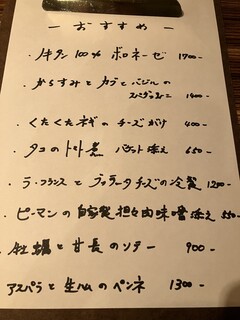 — おすすめ —
・牛タン100% ボロネーゼ 1700-
・からすみと カブとバジルの
スパゲッティーニ 1400-
・くたくたネギの チーズがけ 400-
・タコのトマト煮 バゲット添え 650-
・ラ・フランスと ブッラータチーズの冷製 1200-
・ピーマンの自家製担々肉味噌添え 550-
・牡蠣と甘長のソテー 900-
・アスパラと生ハムのペンネ 1300-